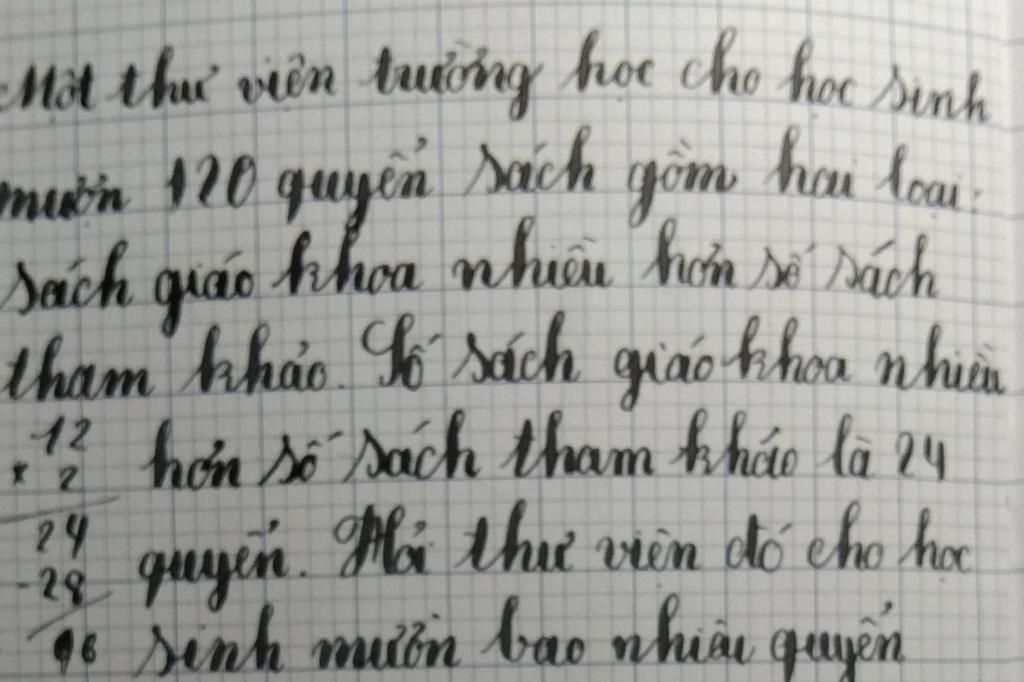 Một thư viện trường học cho học sinh
mượn 120 quyển sách gồm hai loại:
sách giáo khoa nhiều hơn số sách
tham khảo. Số sách giáo khoa nhiều
12 hơn số sách tham khảo là 24
x 2
24 quyển. Hỏi thư viện đó cho học
- 28
96 sinh mượn bao nhiêu quyển